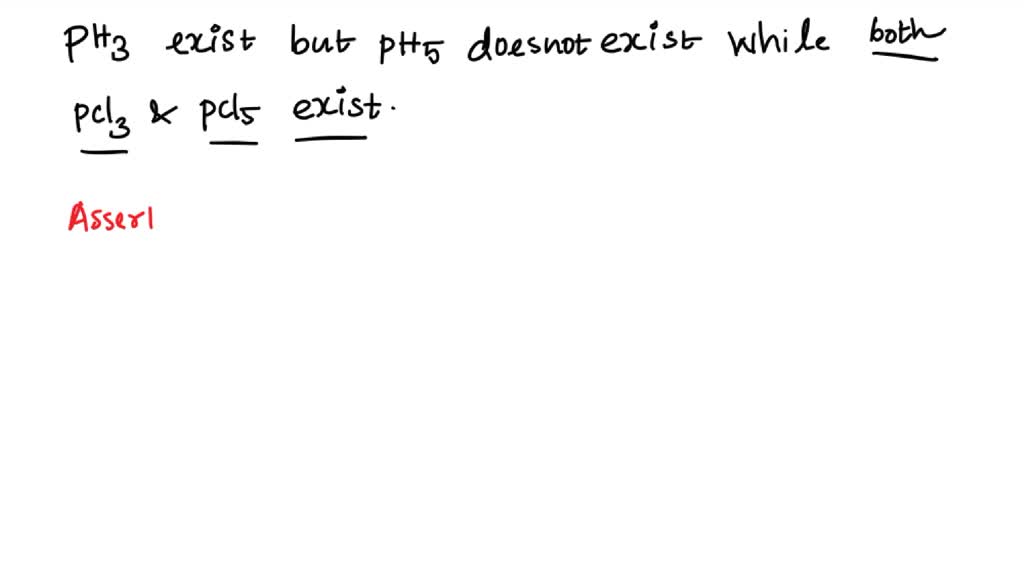 PH3 exist but pH5 doesnot exist while both
pcl3 & pcl5 exist.
Asserl